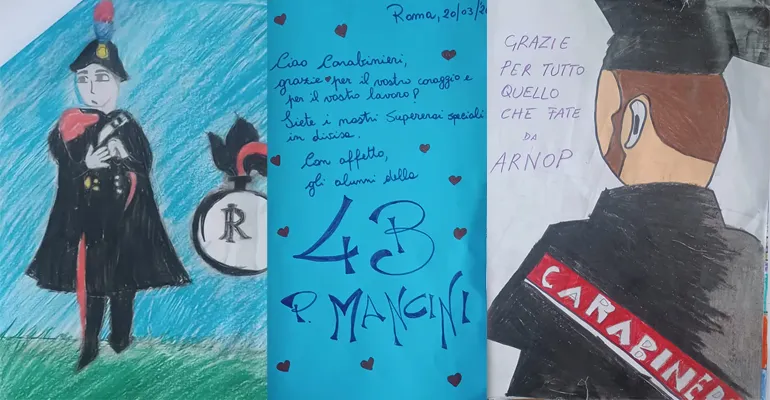 RI
Roma, 20/03/20
Ciao Carabinieri,
grazie per il vostro coraggio e
per il vostro lavoro!
Siete i nostri Supereroi speciali
in divisa.
Con affetto,
gli alunni della
4B
P. MANCINI
GRAZIE
PER TUTTO
QUELLO
CHE FATE
DA
ARNOP
CARABINERI